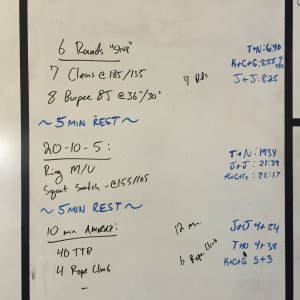 6 Rounds
T+N: 6:40
K+C+G: 8:55
7 Cleans @ 185/135
7 Rds
J+J: 8:25
8 Burpee BJ @ 36"/30"
~ 5 MIN REST ~
20-10-5:
T+N: 19:34
Ring M/U
J+J: 21:39
Squat Snatch - @155/105
K+C+G: 22:17
~ 5 MIN REST ~
10 min AMRAP:
12 min
J+J 4+24
40 TTB
TN 4+38
4 Rope Climb
6 Rope Climb
K+C+G 3+3